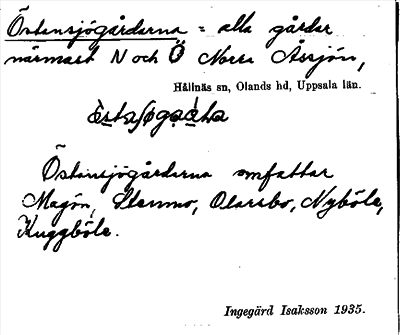 Östansjögårdarna = alla gårdar
närmast N och Ö Norra Åssjön,
Hållnäs sn, Olands hd, Uppsala län.
Östansjögårdarna omfattar
Magön, Stenmo, Olarsbo, Nyböle,
Kuggböle.
Ingegärd Isaksson 1935.